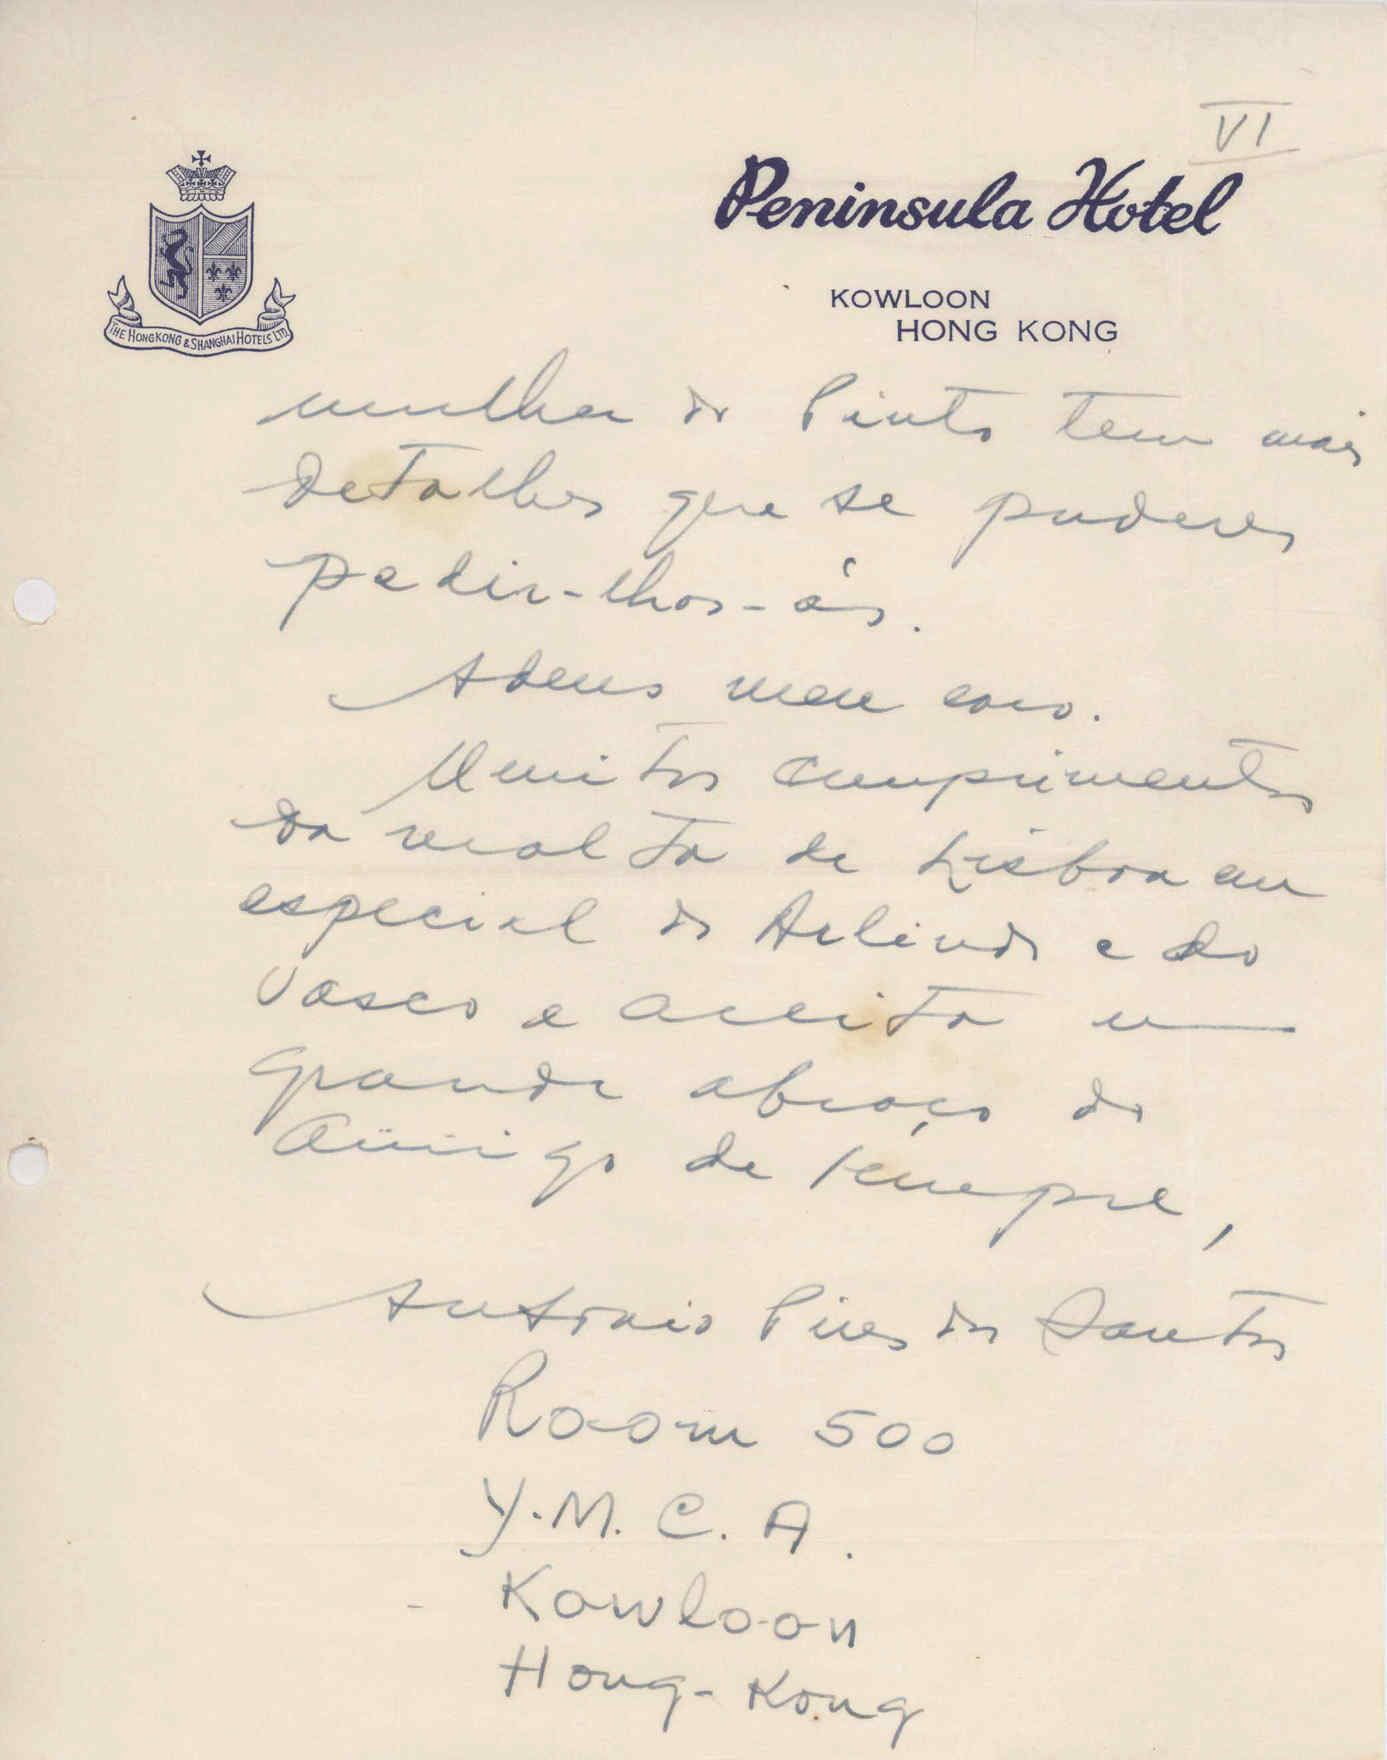 VI
Peninsula Hotel
KOWLOON
HONG KONG
THE HONGKONG & SHANGHAI HOTELS LTD.
mulher do Pinto tem mais
detalhes que se puderes
pedir-lhos-ás.
Adeus meu caro.
Muitos cumprimentos
da malta de Lisboa em
especial do Arlindo e do
Vasco e aceita um
grande abraço do
amigo de sempre,
Antonio Pires dos Santos
Room 500
Y.M.C.A.
Kowloon
Hong-Kong